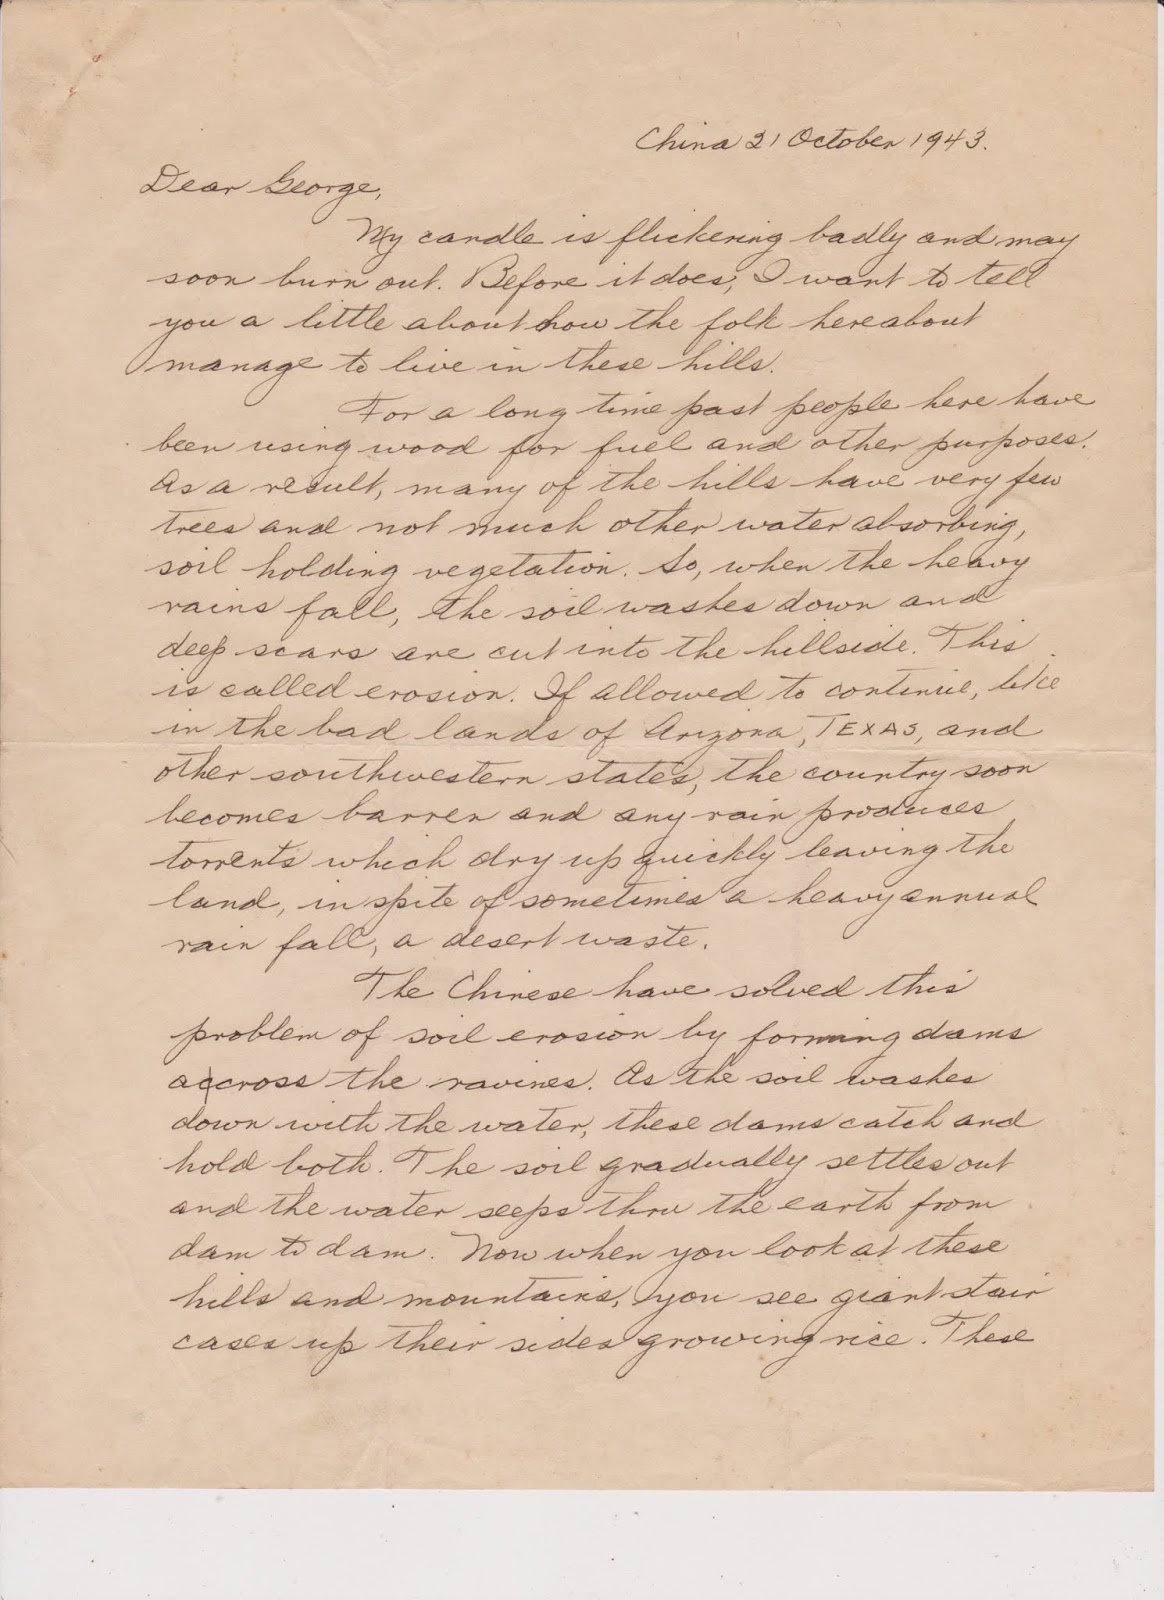 China 21 October 1943.
Dear George,
My candle is flickering badly and may
soon burn out. Before it does, I want to tell
you a little about how the folk hereabout
manage to live in these hills.
For a long time past people here have
been using wood for fuel and other purposes.
As a result, many of the hills have very few
trees and not much other water absorbing,
soil holding vegetation. So, when the heavy
rains fall, the soil washes down and
deep scars are cut into the hillside. This
is called erosion. If allowed to continue, like
in the bad lands of Arizona, TEXAS, and
other southwestern states, the country soon
becomes barren and any rain produces
torrents which dry up quickly leaving the
land, in spite of sometimes a heavy annual
rain fall, a desert waste.
The Chinese have solved this
problem of soil erosion by forming dams
accross the ravines. As the soil washes
down with the water, these dams catch and
hold both. The soil gradually settles out
and the water seeps thru the earth from
dam to dam. Now when you look at these
hills and mountains, you see giant stair
cases up their sides growing rice. These